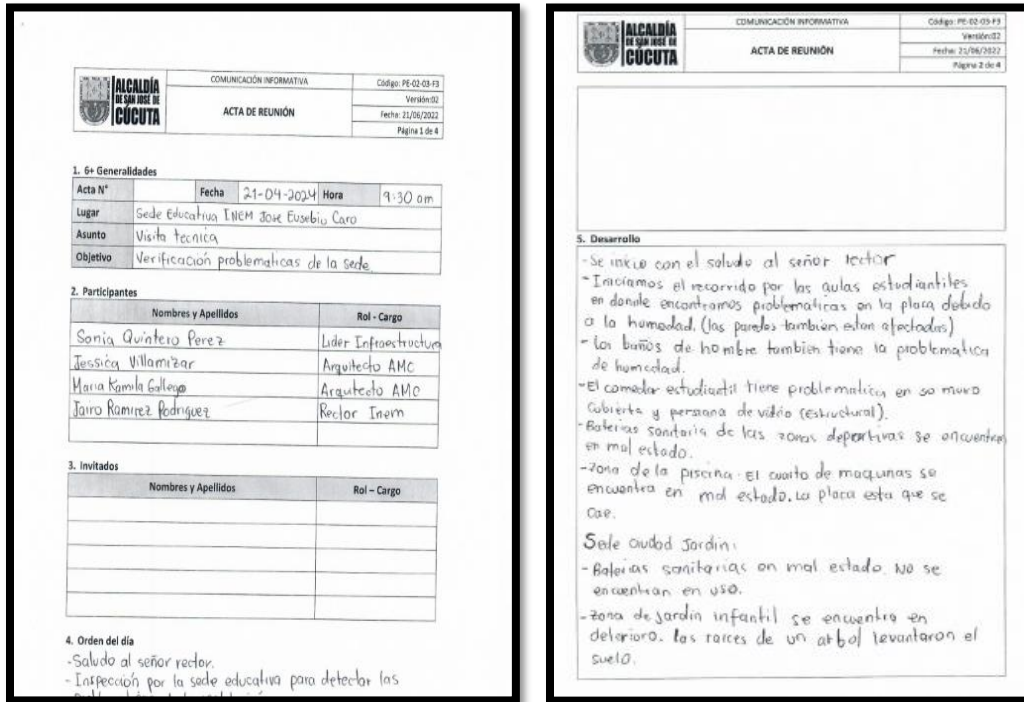 ALCALDÍA
DE SAN JOSÉ DE
CÚCUTA
COMUNICACIÓN INFORMATIVA
ACTA DE REUNIÓN
Código: PE-02-03-F3
Versión:02
Fecha: 21/06/2022
Página 1 de 4
1. 6+ Generalidades
Acta N° Fecha 21-04-2024 Hora 9:30 am
Lugar Sede Educativa INEM Jose Eusebio Caro
Asunto Visita tecnica
Objetivo Verificación problematicas de la sede
2. Participantes
Nombres y Apellidos Rol - Cargo
Sonia Quintero Perez Lider Infraestructura
Jessica Villamizar Arquitecto AMC
Maria Kamila Gallego Arquitecto AMC
Jairo Ramirez Rodriguez Rector Inem
3. Invitados
Nombres y Apellidos Rol – Cargo
4. Orden del día
-Saludo al señor rector.
- Inspección por la sede educativa para detectar las
ALCALDÍA
DE SAN JOSÉ DE
CÚCUTA
COMUNICACIÓN INFORMATIVA
ACTA DE REUNIÓN
Código: PE-02-03-F3
Versión:02
Fecha: 21/06/2022
Página 2 de 4
5. Desarrollo
-Se inicio con el saludo al señor rector
- Iniciamos el recorrido por las aulas estudiantiles
en donde encontramos problematicas en la placa debido
a la humedad. (las paredes tambien estan afectadas)
- los baños de hombre tambien tiene la problematica
de humedad.
-El comedor estudiantil tiene problematica en so muro
cubierta y persiana de vidrio (estructural).
-Baterias sanitaria de las zonas deportivas se encuentran
en mal estado.
-Zona de la piscina. El cuarto de maquinas se
encuentra en mal estado. La placa esta que se
cae.
Sede ciudad Jardin:
- Baterias sanitarias en mal estado. No se
encuentran en uso.
-Zona de jardin infantil se encuentra en
deterioro. las raices de un arbol levantaron el
suelo.